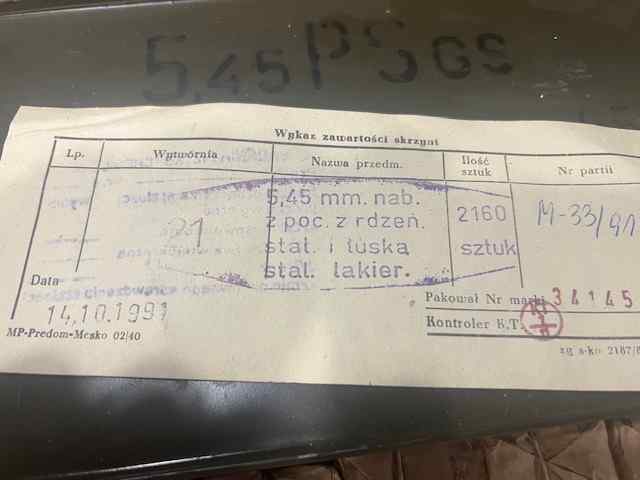 5,45 PS GS
Wykaz zawartości skrzyni
Lp. Wytwórnia Nazwa przedm. Ilość sztuk Nr partii
21 5,45 mm. nab. z poc. z rdzeń. stal. i łuska stal. lakier. 2160 sztuk M-33/91
Data
14.10.1991
Pakował Nr marki 34145
Kontroler K.T.
MP-Predom-Mesko 02/40
zg s-ko 2167/